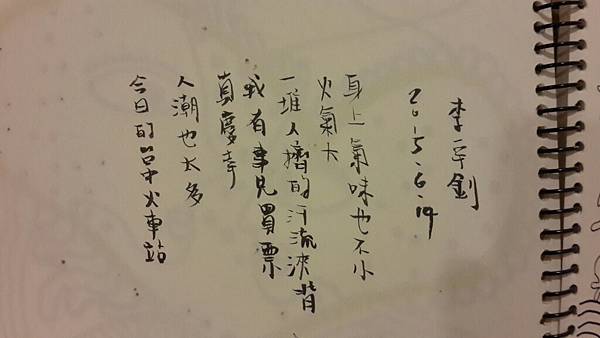 今日的台中火車站
人潮也太多
真慶幸
我有事先買票
一堆人擠的汗流浹背
火氣大
身上氣味也不小
2015.6.19
李釗